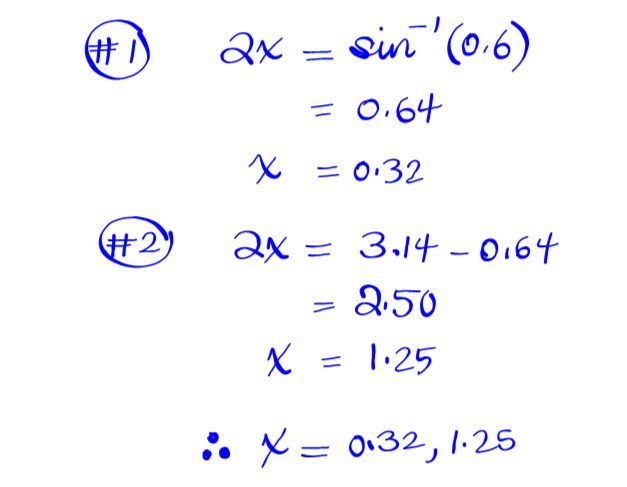 #1 2x = sin⁻¹(0.6)
= 0.64
x = 0.32
#2 2x = 3.14 - 0.64
= 2.50
x = 1.25
∴ x = 0.32, 1.25